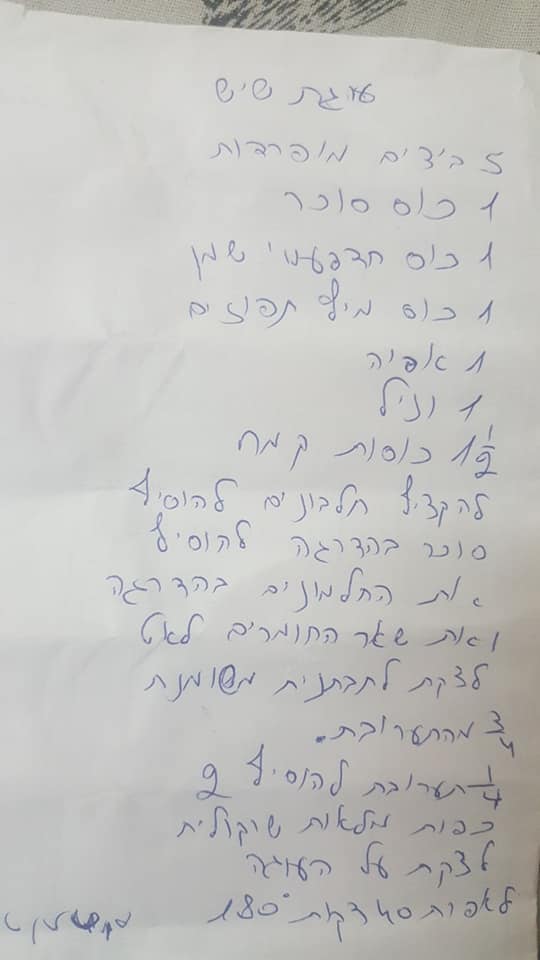 עוגת שיש
5 ביצים מופרדות
1 כוס סוכר
1 כוס חד פעמי שמן
1 כוס מיץ תפוזים
1 אפיה
1 וניל
1 1/2 כוסות קמח
להקציף חלבונים להוסיף
סוכר בהדרגה להוסיף
את החלמונים בהדרגה
ואת שאר החומרים לאט
לצקת לתבנית משומנת
3/4 מהתערובת.
1/4 תערובת להוסיף 2
כפות מלאות שוקולית
לצקת על העוגה
לאפות דקות 180°